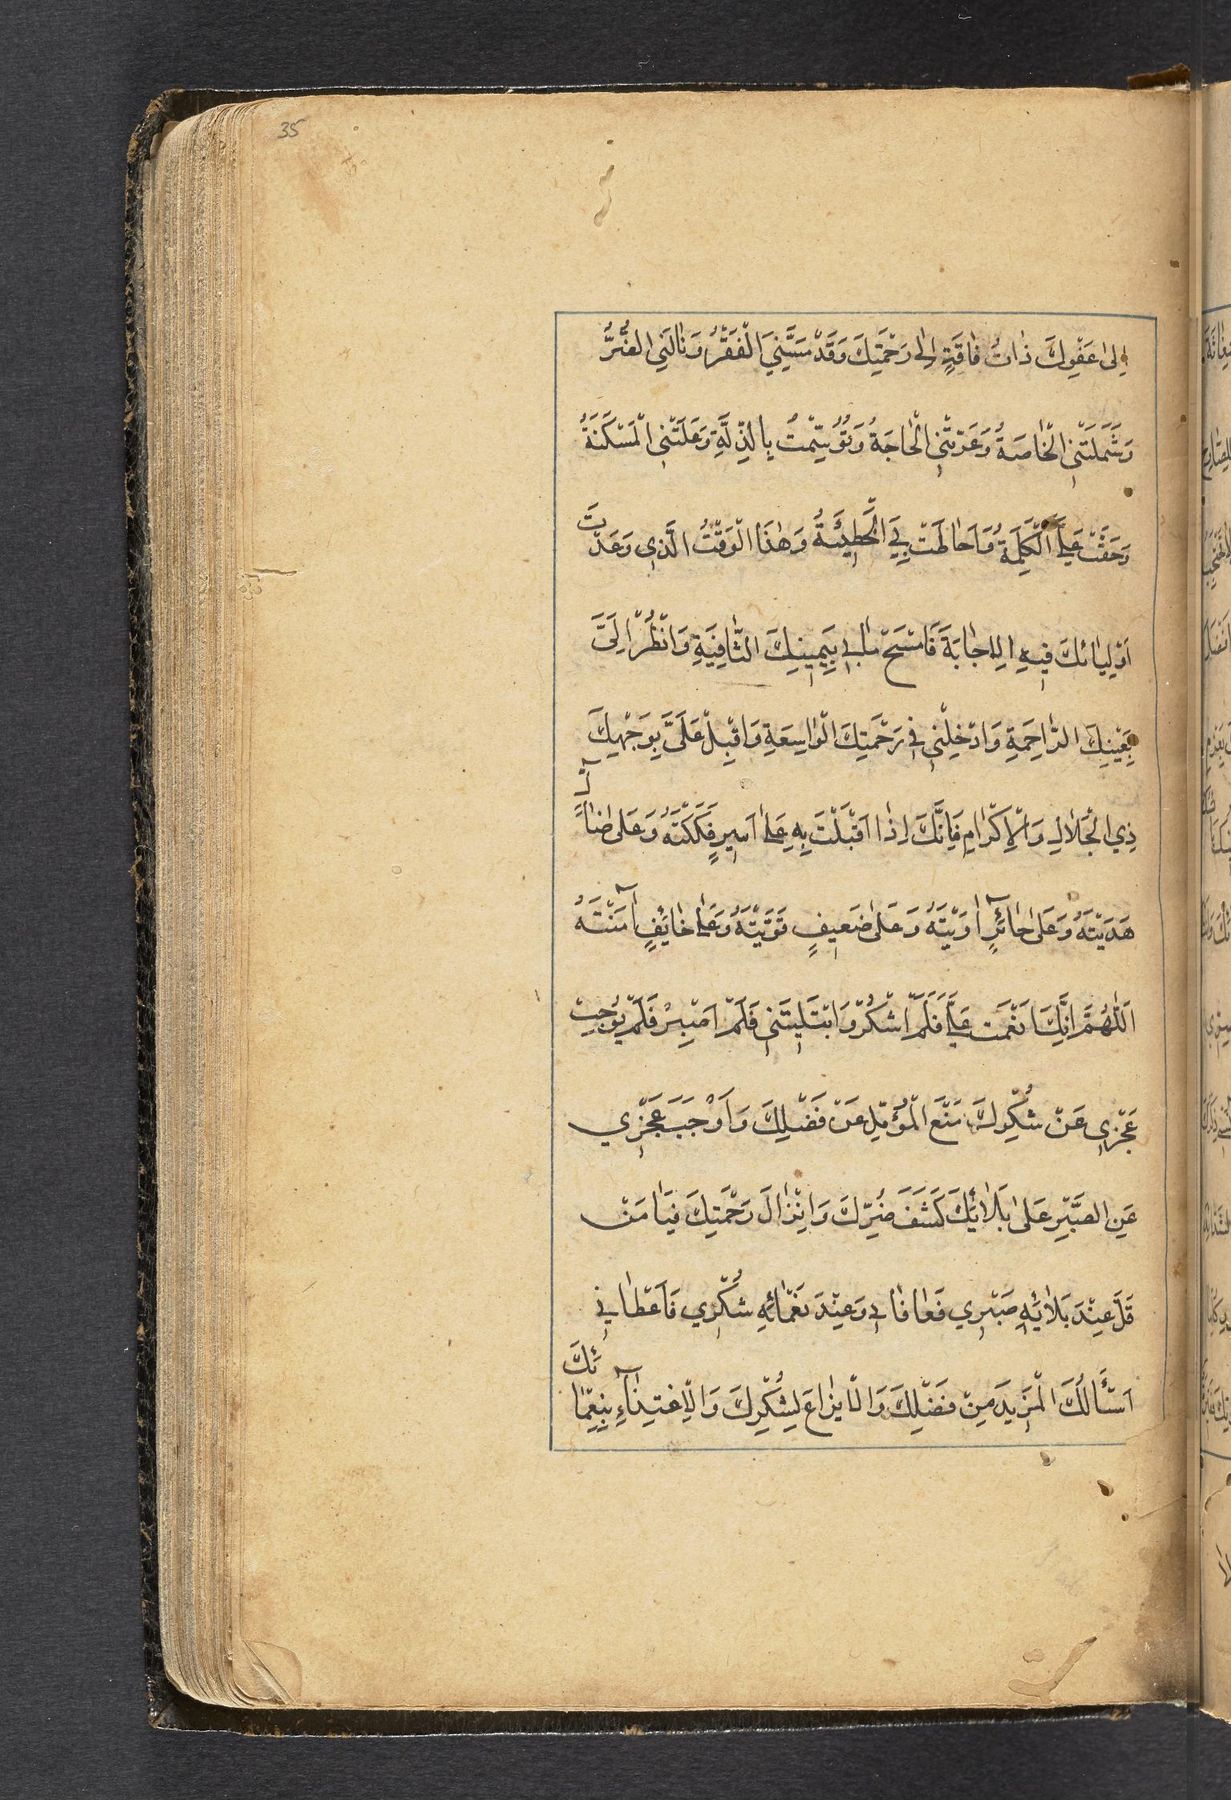 35
اِلىٰ عَفْوِكَ ذَاتُ فٰاقَةٍ اِلىٰ رَحْمَتِكَ وَقَدْ مَسَّنِيَ الْفَقْرُ وَنٰالَنِي الضُّرُّ
وَشَمَلَتْنِي الْخَاصَةُ وَعَرَتْنِي الْحٰاجَةُ وَتُوُسِّمْتُ بِالذِّلَّةِ وَعَلَتْنِي الْمَسْكَنَةُ
وَحَقَّتْ عَلَيَّ الْكَلِمَةُ وَاَحٰاطَتْ بِيَ الْخَطِيئَةُ وَهٰذَا الْوَقْتُ الَّذِي وَعَدْتَ
اَوْلِيٰائَكَ فِيهِ الاِجٰابَةَ فَامْسَحْ مٰا بِي بِيَمِينِكَ الشّٰافِيَةِ وَانْظُرْ اِلَيَّ
بِعَيْنِكَ الرّٰاحِمَةِ وَادْخِلْنِي فِي رَحْمَتِكَ الْوٰاسِعَةِ وَاقْبِلْ عَلَيَّ بِوَجْهِكَ
ذِي الْجَلٰالِ وَالْاِكْرٰامِ فَاِنَّكَ اِذٰا اَقْبَلْتَ بِهِ عَلىٰ اَسِيرٍ فَكَكْتَهُ وَعَلىٰ ضٰالٍّ
هَدَيْتَهُ وَعَلىٰ حٰائِرٍ آوَيْتَهُ وَعَلىٰ ضَعِيفٍ قَوَّيْتَهُ وَعَلىٰ خٰائِفٍ آمَنْتَهُ
اَللّٰهُمَّ اِنَّكَ اَنْعَمْتَ عَلَيَّ فَلَمْ اَشْكُرْ وَابْتَلَيْتَنِي فَلَمْ اَصْبِرْ فَلَمْ يُوجِبْ
عَجْزِي عَنْ شُكْرِكَ مَنْعَ الْمُؤَمِّلِ عَنْ فَضْلِكَ وَاَوْجَبَ عَجْزِي
عَنِ الصَّبْرِ عَلىٰ بَلٰائِكَ كَشْفَ ضُرِّكَ وَاِنْزٰالَ رَحْمَتِكَ فَيٰا مَنْ
قَلَّ عِنْدَ بَلٰائِهِ صَبْرِي فَعٰافٰانِي وَعِنْدَ نَعْمٰائِهِ شُكْرِي فَاَعْطٰانِي
اَسْأَلُكَ الْمَزِيدَ مِنْ فَضْلِكَ وَالْايزٰاعَ لِشُكْرِكَ وَالْاِعْتِنٰآءِ بِنِعْمٰائِكَ